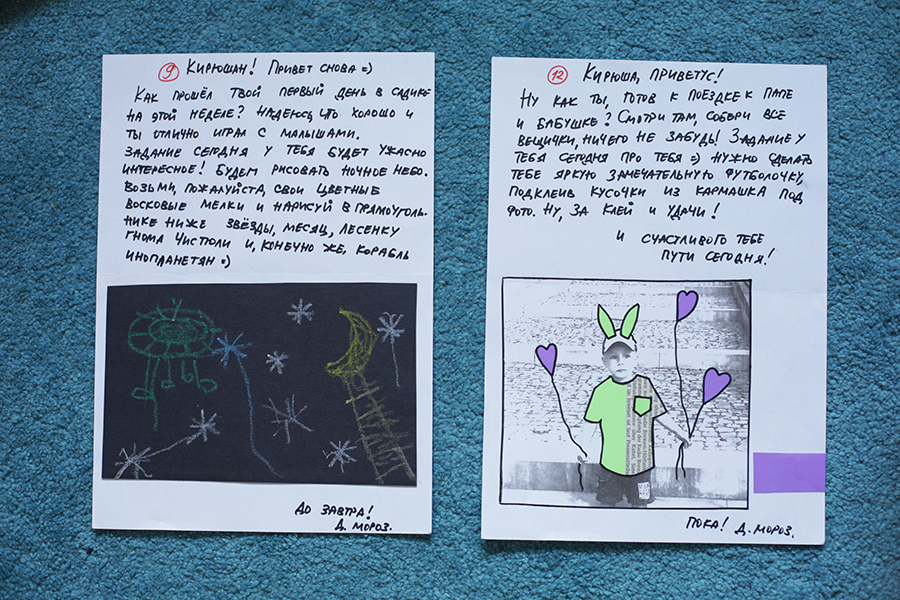 9 Кирюшан! Привет снова =)
Как прошёл твой первый день в садике
на этой неделе? Надеюсь, что хорошо и
ты отлично играл с малышами.
Задание сегодня у тебя будет ужасно
интересное! Будем рисовать ночное небо.
Возьми, пожалуйста, свои цветные
восковые мелки и нарисуй в прямоуголь-
нике ниже звёзды, месяц, лесенку
гнома Чистюли и, конечно же, корабль
инопланетян =)
До завтра!
Д. Мороз.
12 Кирюша, приветус!
Ну как ты, готов к поездке к папе
и бабушке? Смотри там, собери все
вещички, ничего не забудь! Задание у
тебя сегодня про тебя =) Нужно сделать
тебе яркую замечательную футболочку,
подклеив кусочки из кармашка под
фото. Ну, за клей и удачи!
И счастливого тебе
пути сегодня!
Пока! Д. Мороз.